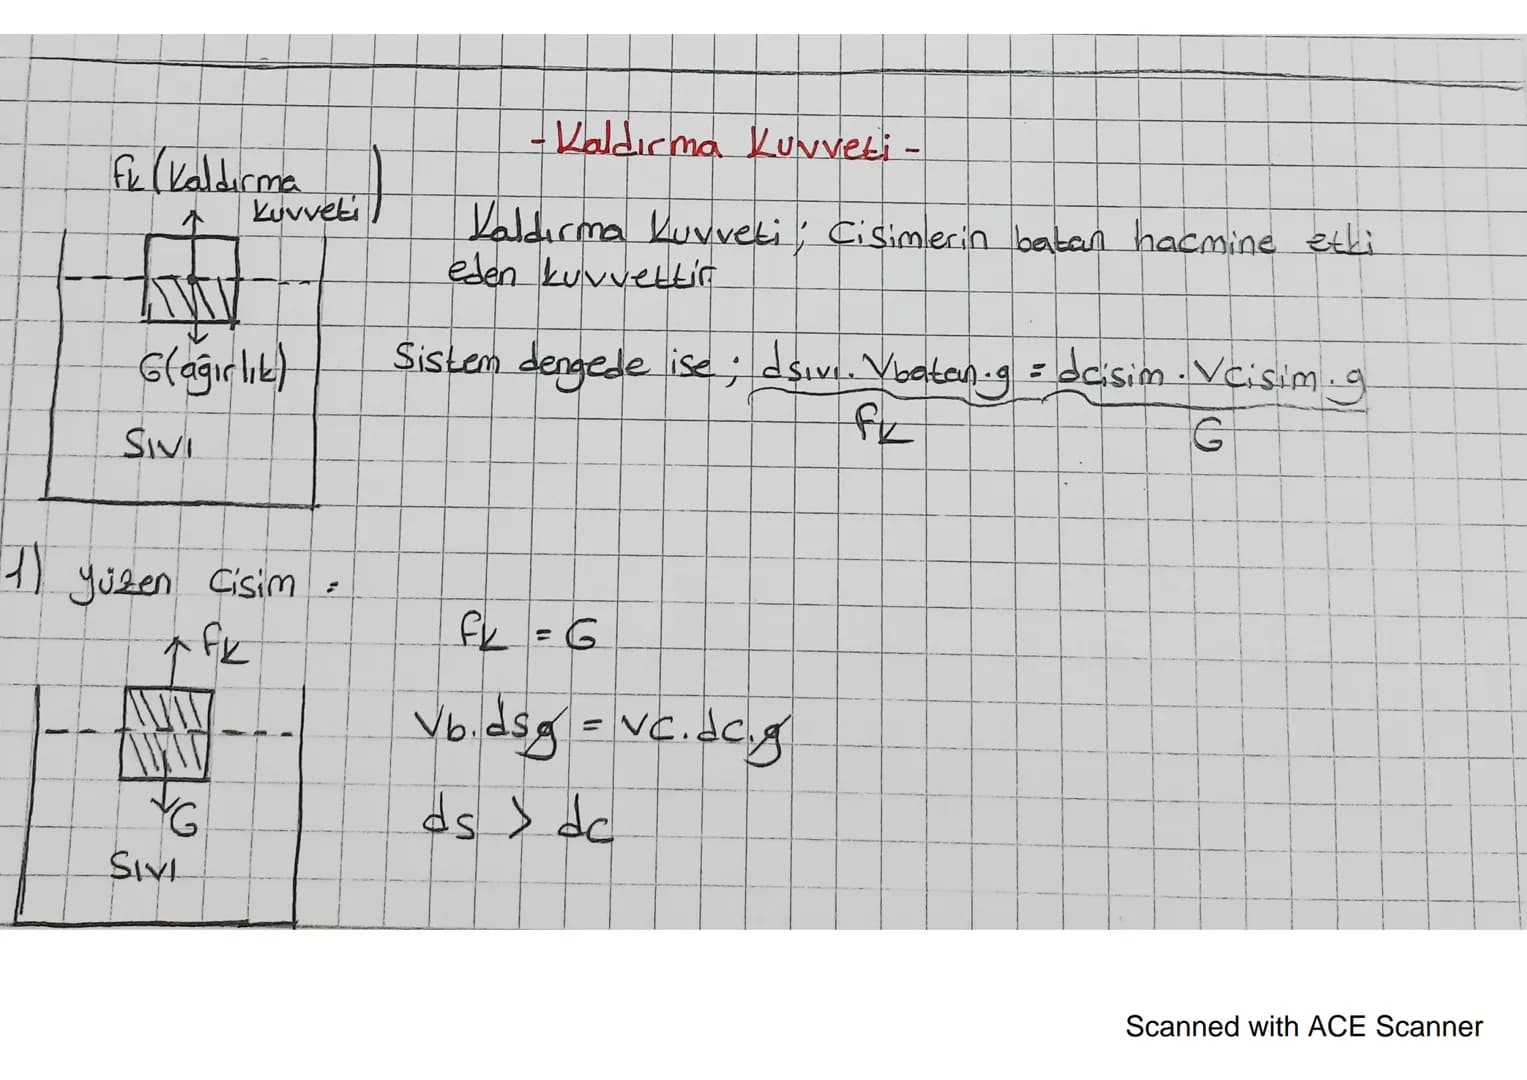 -Kaldırma Kuvveti-
Fk (Kaldırma
Kuvveti)
Kaldırma Kuvveti; Cisimlerin batan hacmine etki
eden kuvvettir
G(ağırlık)
Sistem dengede ise; dsıvı. Vbatan.g = dcisim. Vcisim.g
Fk
G
SIVI
1) Yüzen Cisim =
Fk
Fk = G
Vb.dsg = Vc.dc.g
G
ds > dc
SIVI
Scanned with ACE Scanner